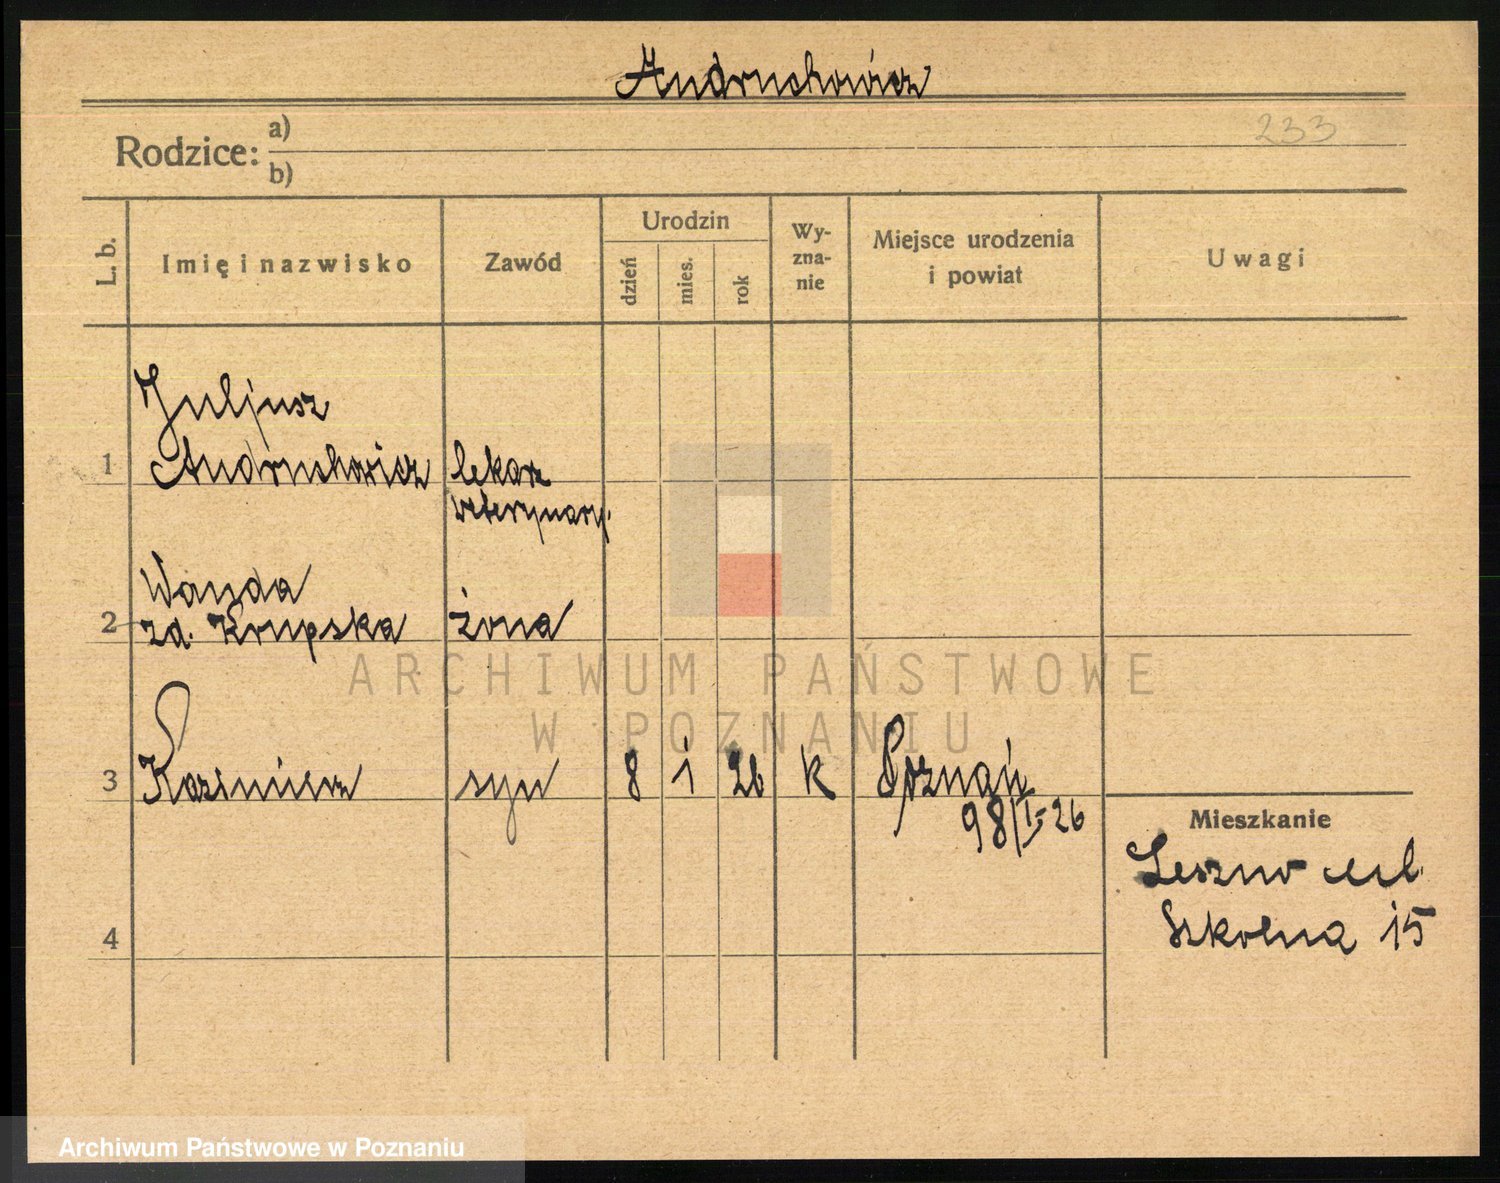 Andruchowicz
Rodzice: a)
b)
233
L. b.
Imię i nazwisko
Zawód
Urodzin
dzień
mies.
rok
Wy-
zna-
nie
Miejsce urodzenia
i powiat
Uwagi
Juljusz
1 Andruchowicz lekarz
weterynaryj.
Wanda
2 zd. Krupska żona
3 Kazimierz syn 8 1 26 k Poznań
98/I-26
Mieszkanie
Leszno ul.
Szkolna 15
4
ARCHIWUM PAŃSTWOWE
W POZNANIU
Archiwum Państwowe w Poznaniu